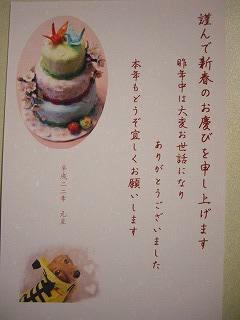 謹んで新春のお慶びを申し上げます
昨年中は大変お世話になり
ありがとうございました
本年もどうぞ宜しくお願いします
平成二二年 元旦